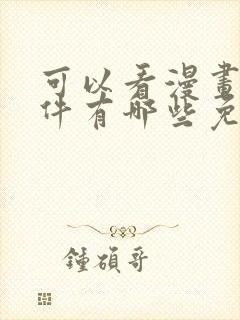 可以看漫畫
件有哪些免
鍾碩哥